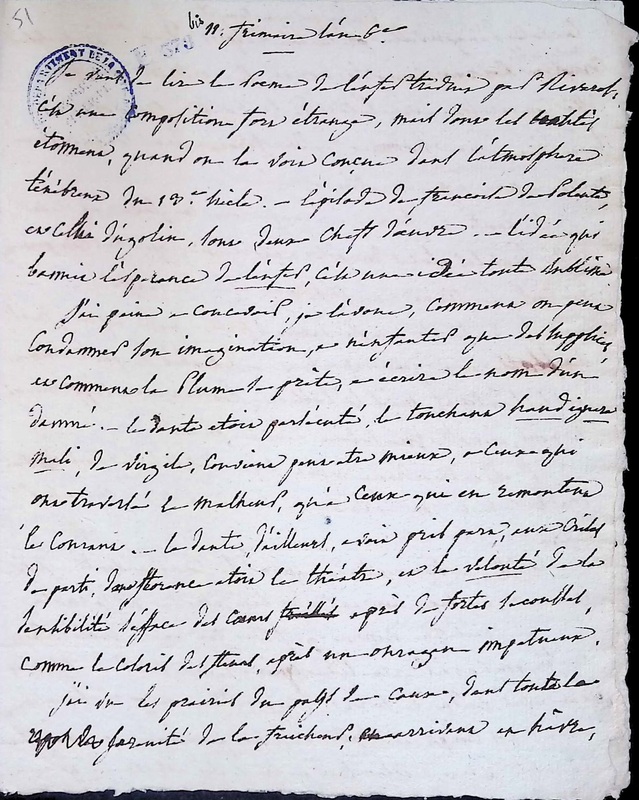 51
bis
11. frimaire l'an 6e
DÉPARTEMENT DE LA
je viens de lire le Poeme de l'enfer traduit par Rivarol.
c'est une composition fort étrange, mais dont les beautés
etonnent, quand on la voit conçue dans l'atmosphere
ténébreux du 13e siecle. – l'episode de francoise de Polente,
et celui d'ugolin, sont deux chefs d'œuvre. – l'idée qui
bannit l'espérance de l'enfer, c'est une idée toute sublime
j'ai peine a concevoir, je l'avoue, comment on peut
condamner son imagination, a n'enfanter que des supplices
et comment la plume se prête, a écrire le nom d'un
damné. – le dante etoit persécuté, le touchant haud ignara
mali, de virgile, convient peut etre mieux, a ceux qui
ont traversé le malheur, qu'a ceux qui en remontent
le courant. – le dante, d'ailleurs, avoit pris part, aux crises
de parti, dont florence etoit le théatre, et le velouté de la
sensibilité s'efface des cœurs après de fortes secousses,
comme le coloris des fleurs, après un ouragan impetueux.
j'ai vu les prairies du pays de caux, dans toute la
sérénité de la fraicheur, arrivant en hâvre,